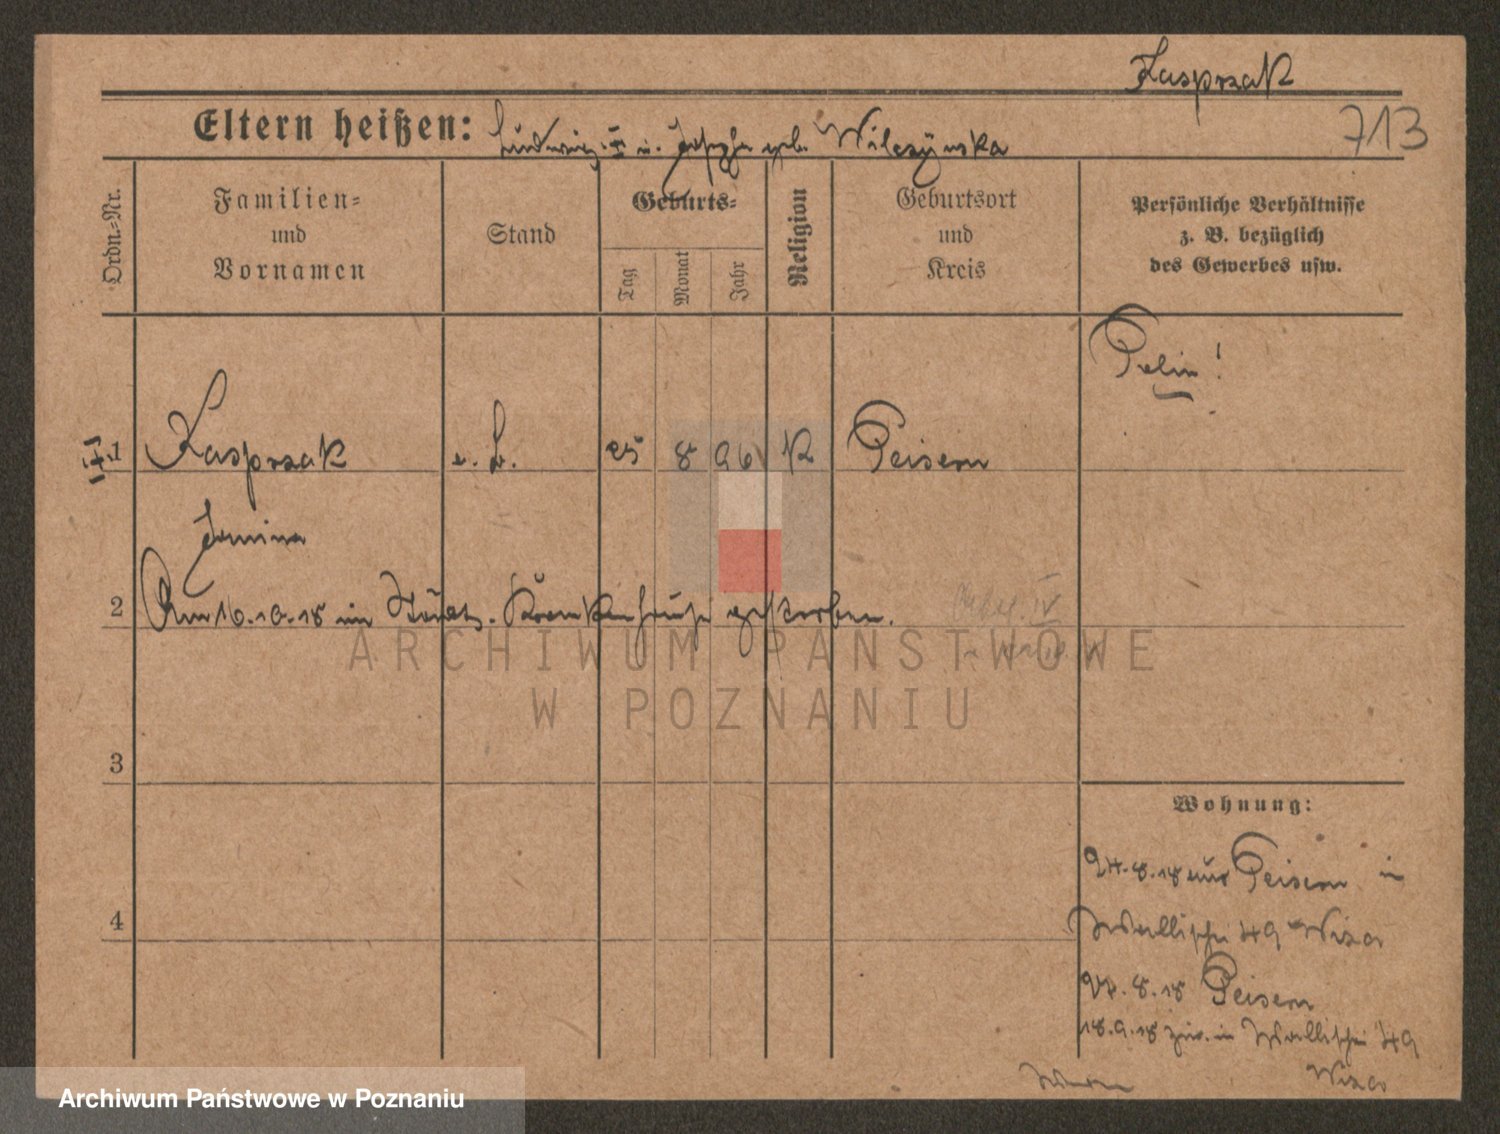 Kasprzak
713
Eltern heißen: Ludwig u. Josepha geb. Wilczynska
Ordn.-Nr.
Familien-
und
Vornamen
Stand
Geburts-
Tag
Monat
Jahr
Religion
Geburtsort
und
Kreis
Persönliche Verhältnisse
z. B. bezüglich
des Gewerbes usw.
Polin!
1 Kasprzak 25 8 96 K Peisern
Janina
2 Am 16.10.18 im Städt. Krankenhause gestorben.
ARCHIWUM PAŃSTWOWE
W POZNANIU
3
Wohnung:
24.8.18 aus Peisern in
Wallischei 49 Wiza
4
27.8.18 Peisern
18.9.18 zur. in Wallischei 49
Wiza
Archiwum Państwowe w Poznaniu